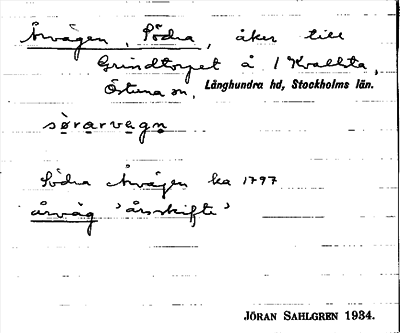 Årvägen, Södra, åker till
Grindtorpet å 1 Kvallsta,
Östuna sn, Långhundra hd, Stockholms län.
sø̱ṟa̱rve̱gṉ
Södra Årvägen ka 1797
årväg 'årsskifte'
JÖRAN SAHLGREN 1934.